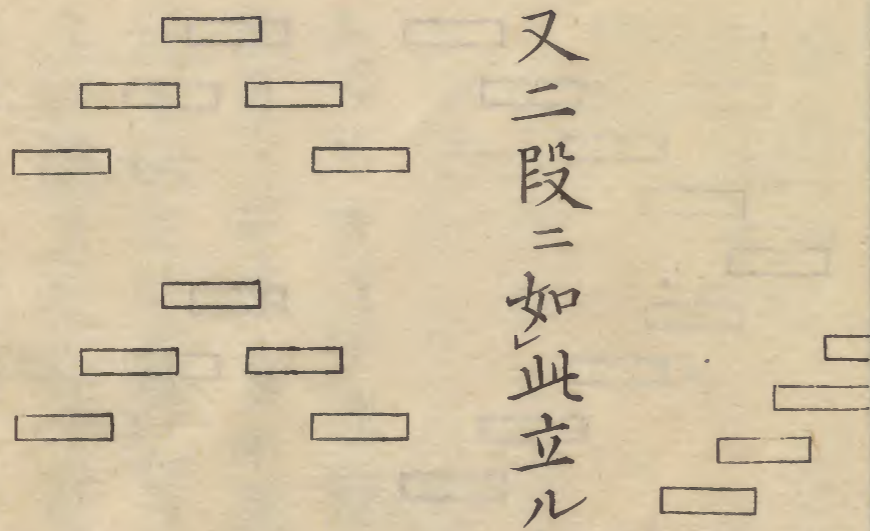 又二段ニ如㆑此立ル